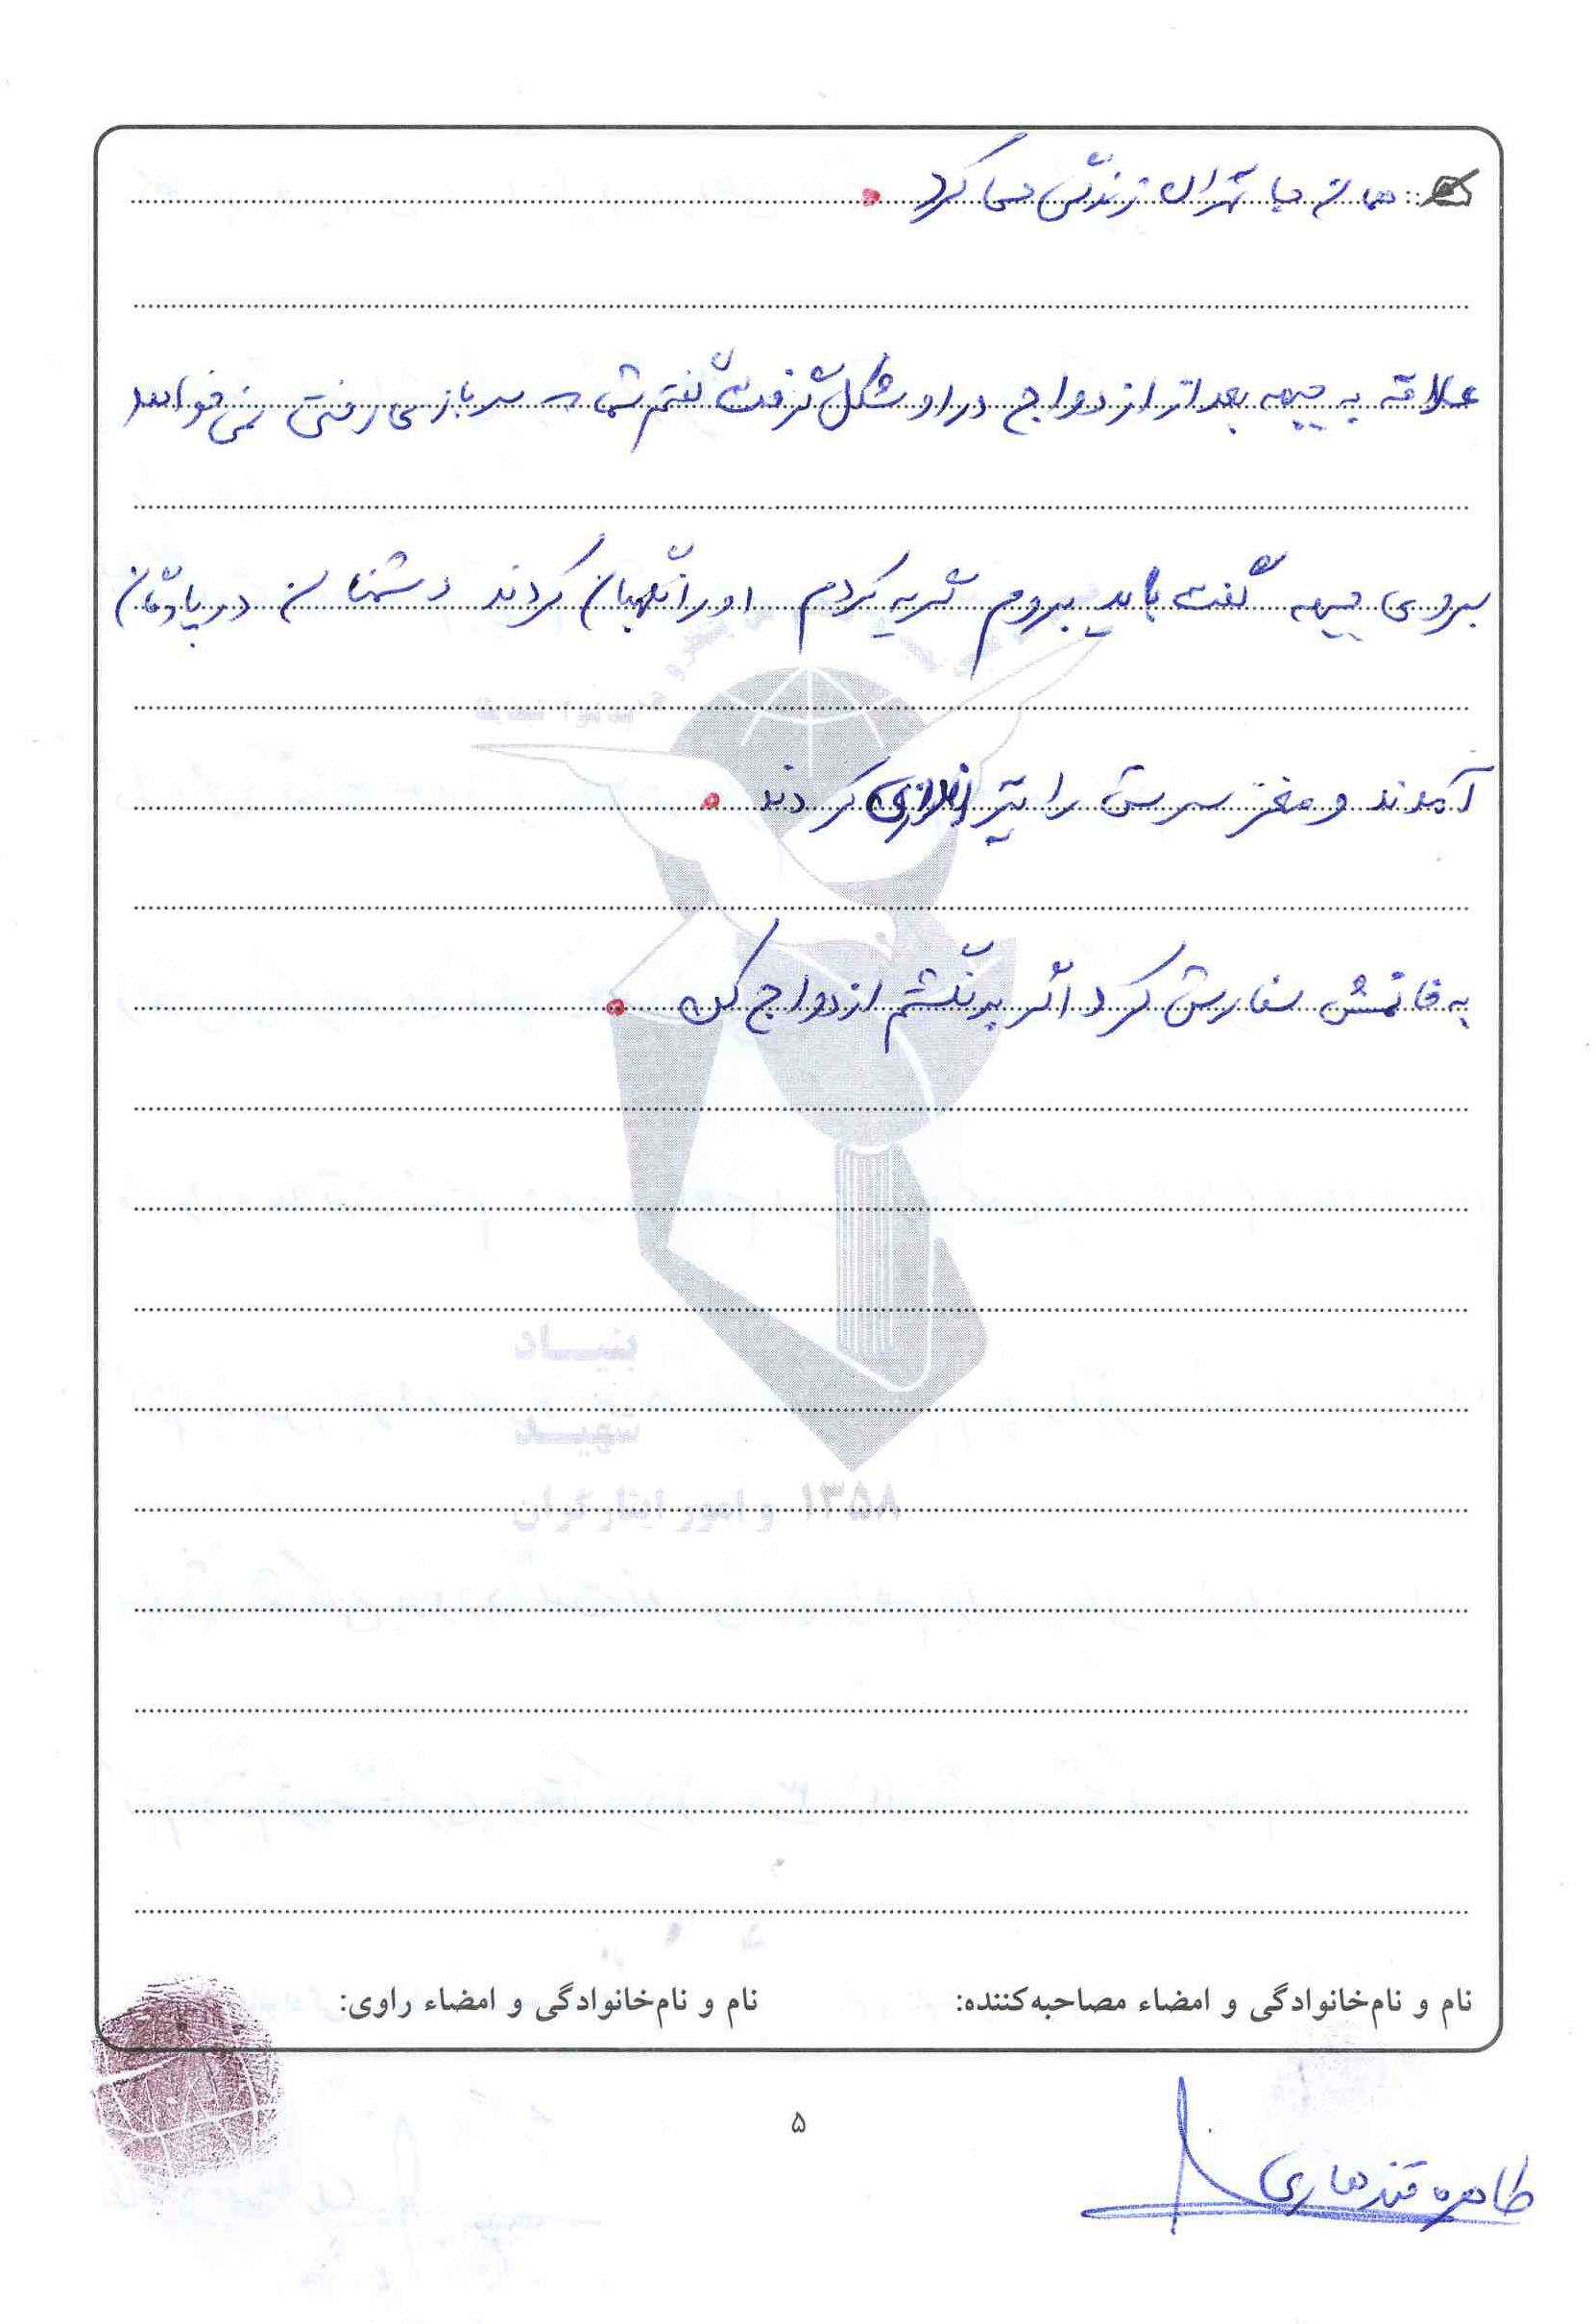 همان جا تهران زندگی می کرد.
علاقه به جبهه بعد از ازدواج در او شکل گرفت گفتم شما که سربازی رفتی نمی خواهد
بروی جبهه گفت باید بروم گریه کردم او را نگهبان کردند دشمنان در پادگان
آمدند و مغز سرش را تیر اندازی کردند.
به خانمش سفارش کرد اگر برنگشتم ازدواج کن.
بنیاد
شهید
و امور ایثارگران ۱۳۵۸
نام و نام‌خانوادگی و امضاء مصاحبه‌کننده: نام و نام‌خانوادگی و امضاء راوی:
۵
طاهره قندهاری